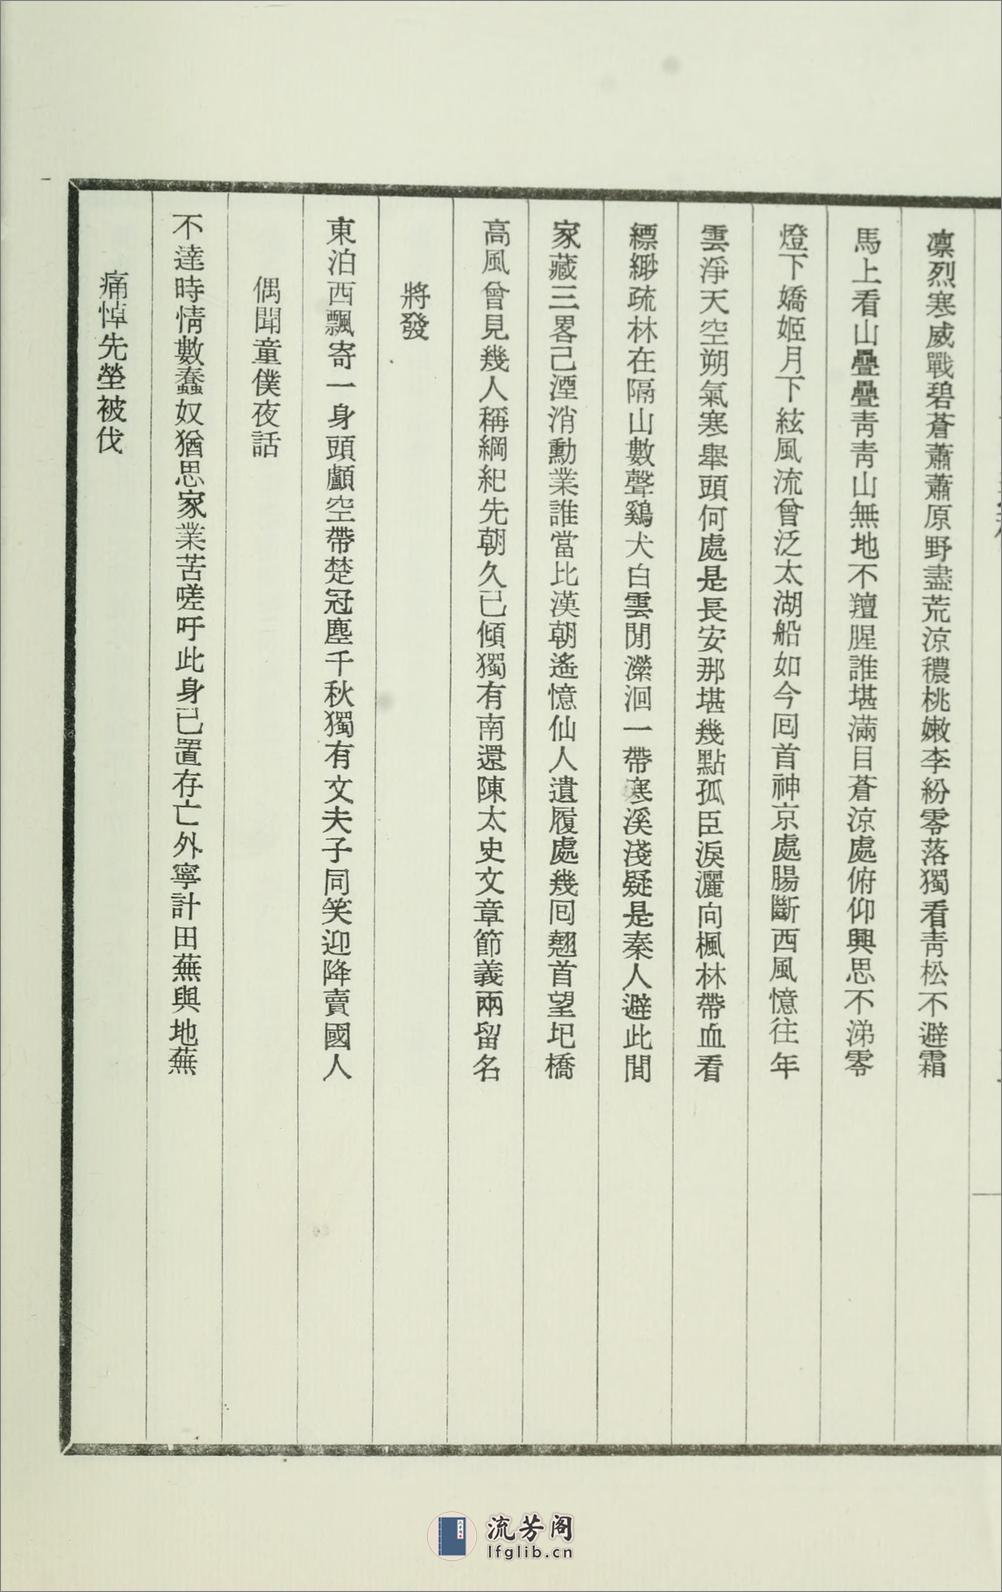 凛烈寒威戰碧蒼蕭蕭原野盡荒涼穠桃嫩李紛零落獨看靑松不避霜
馬上看山疊疊靑靑山無地不羶腥誰堪滿目蒼涼處俯仰興思不涕零
燈下嬌姬月下絃風流曾泛太湖船如今囘首神京處腸斷西風憶往年
雲淨天空朔氣寒舉頭何處是長安那堪幾點孤臣淚灑向楓林帶血看
縹緲疏林在隔山數聲鷄犬白雲閒瀠洄一帶寒溪淺疑是秦人避此間
家藏三畧己湮消勳業誰當比漢朝遙憶仙人遺履處幾囘翹首望圯橋
高風曾見幾人稱綱紀先朝久已傾獨有南還陳太史文章節義兩留名
將發
東泊西飄寄一身頭顱空帶楚冠塵千秋獨有文夫子同笑迎降賣國人
偶聞童僕夜話
不達時情數蠢奴猶思家業苦嗟吁此身已置存亡外寧計田蕪與地蕪
痛悼先塋被伐
流芳阁
lfglib.cn